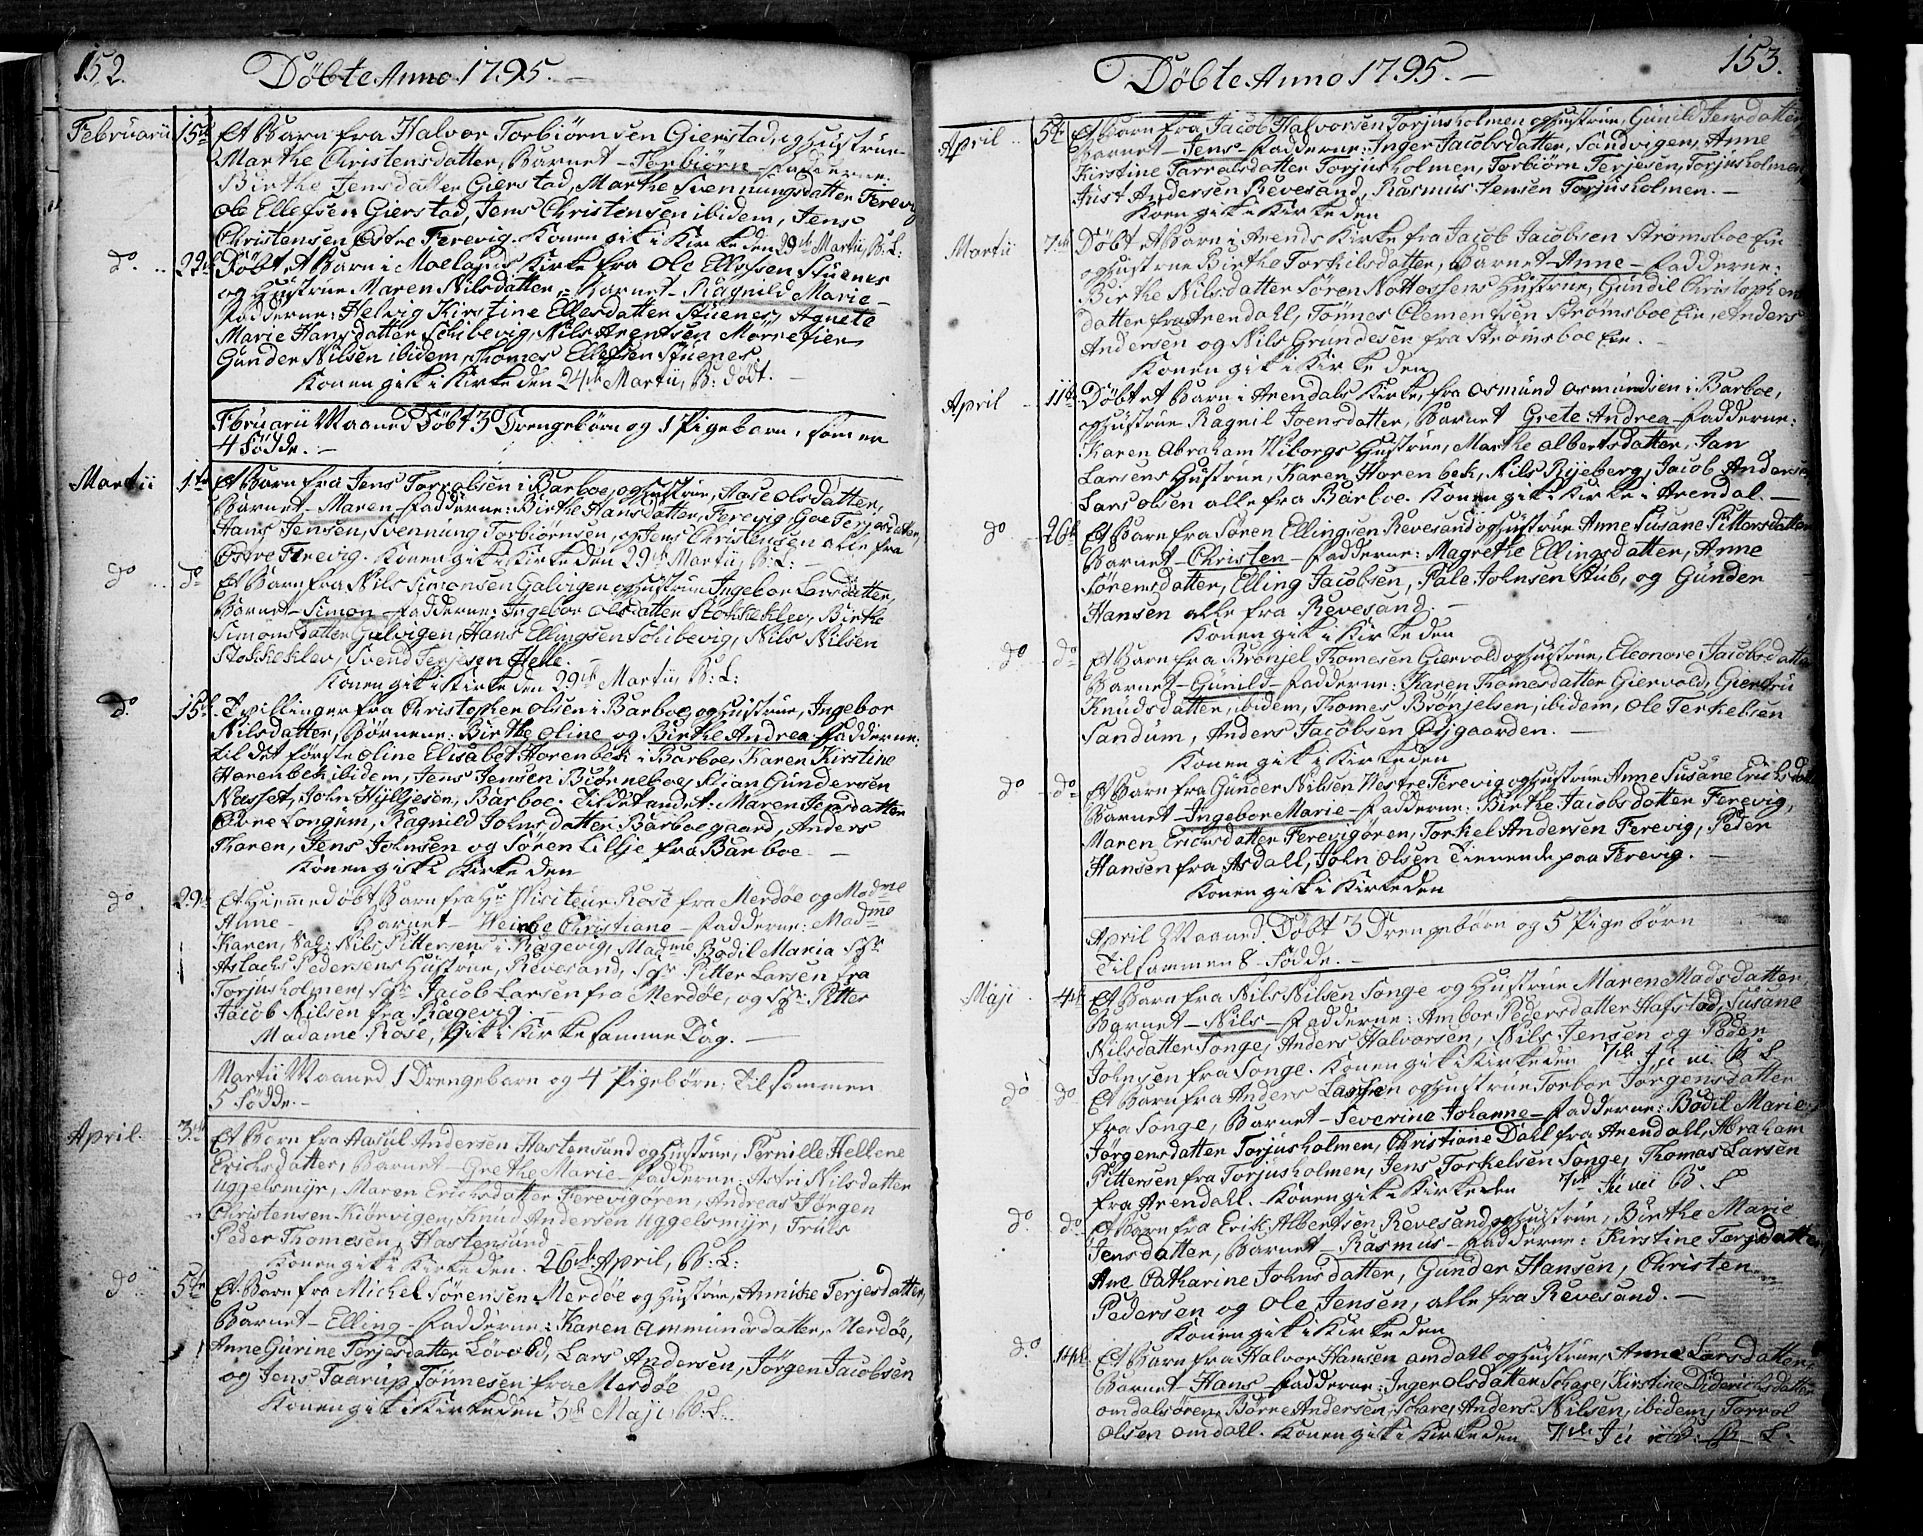 152.
Döbte Anno 1795.
Februarii 15de Et Barn fra Halvor Torbiörnsen Gierstad, og Hustrue
Marthe Christensdatter, Barnet - Torbiörn - Fadderne:
Birthe Jensdatter Gierstad, Marthe Svenningsdatter Ferevig
Ole Ellefsen Gierstad, Jens Christensen ibidem, Jens
Christensen Östre Ferevig. Konen gik i Kirke den 29de Martii, B: L:
do. 22de Döbt Et Barn i Moelands Kirke fra Ole Ellefsen Stuenes
og Hustrue Maren Nilsdatter, Barnet - Ragnild Marie -
Fadderne: Helvig Kirstine Ellesdatter Stuenes, Agnete
Marie Hansdatter Schibevig, Nils Arentsen Mörrefier
Gunder Nilsen ibidem, Thomes Ellefsen Stuenes.
Konen gik i Kirke den 24de Martii, B: Födt. -
Februarii Maaned Döbt 3 Drengebörn og 1 Pigebarn, som er
4 Födde. -
Martii 1te Et Barn fra Jens Torralsen i Barboe, og Hustrue, Aase Olsdatter,
Barnet - Maren - Fadderne: Birthe Hansdatter, Ferevig Goe Terjesdatter,
Hans Jensen, Svenning Torbiörnsen, og Jens Christensen alle fra
Östre Ferevig. Konen gik i Kirke den 29de Martii, B: L: -
do do Et Barn fra Nils Simonsen Galvigen og Hustrue Ingebor Larsdatter,
Barnet - Simon - Fadderne: Ingebor Olsdatter Stokkeklev, Birthe
Simonsdatter Galvigen, Hans Ellingsen Schibevig, Nils Nilsen
Stokkeklev, Svend Terjesen Helle.
Konen gik i Kirke den 29de Martii, B: L:
do. 15de Tvillinger fra Christopher Olsen i Barboe, og Hustrue, Ingebor
Nilsdatter, Börnene: Birthe Oline og Birthe Andrea Fadderne:
til det förste Oline Elisabet Horenbek i Barboe, Karen Kirstine
Horenbek ibidem, Jens Jensen Biörneboe, Stian Gundersen
Næsset, John Hylljesen, Barboe. Til det andet: Maren Jensdatter
Övre Longum, Ragnild Johnsdatter Barboegaard, Anders
Tharen, Jens Johnsen og Sören Lillje fra Barboe -
Konen gik i Kirke den
do 29de Et Hiemmedöbt Barn fra Hr Visiteur Rose fra Merdöe og Madme
Anne - Barnet - Weinke Christiane - Fadderne: Madme
Karen, Sal: Nils Pittersens i Ragevig, Madme Bodil Maria Sgr
Aslachs Pedersens Hustrue, Revesand, Sgr Pitter Larsen fra
Torjusholmen, Sgr Jacob Larsen fra Merdöe, og Sgr. Pitter
Jacob Nilsen fra Ragevig. -
Madame Rose, gik i Kirke samme Dag. -
Martii Maaned 1 Drengebarn og 4 Pigebörn; Tilsammen
5 Födde. -
April. 3de Et Barn fra Aasul Andersen Hastensund og Hustrue, Pernille Hellene
Erichsdatter, Barnet - Grethe Marie - Fadderne: Astri Nilsdatter
Uggelsmyr, Maren Erichsdatter Ferevigören, Andreas Jörgen
Christensen Kiörvigen, Knud Andersen Uggelsmyr, Truls
Peder Thomesen, Hastensund -
Konen gik i Kirke den 26de April, B: L:
do 5te Et Barn fra Michel Sörensen Merdöe og Hustrue, Annike Terjesdatter,
Barnet - Elling - Fadderne: Karen Ammundsdatter, Merdöe,
Anne Gurine Terjesdatter Lövold, Lars Andersen, Jörgen Jacobsen
og Jens Taarup Tönnesen fra Merdöe
Konen gik i Kirke den 3de Maji, B: L:
153.
Döbte Anno 1795. -
April 5te Et Barn fra Jacob Halvorsen Torjusholmen og Hustrue, Gunild Jensdatter,
Barnet - Jens - Fadderne: Inger Jacobsdatter, Sandvigen, Anne
Kirstine Tarralsdatter Torjusholmen, Torbiörn Terjesen, Torjusholmen,
Just Andersen Revesand, Rasmus Jensen Torjusholmen. -
Konen gik i Kirke den
Martii 7de Döbt Et Barn i Arends Kirke fra Jacob Jacobsen Strömsboe Eie
og Hustrue Birthe Torkilsdatter, Barnet - Anne - Fadderne:
Birthe Nilsdatter Sören Nottossens Hustrue, Gundil Christophers
datter fra Arendahl, Tönnes Clementsen Strömsboe Eie, Anders
Andersen og Nils Grundesen fra Strömsboe Eie. -
Konen gik i Kirke den
April 11te Döbt et Barn i Arendals Kirke, fra Osmund Osmundsen i Barboe,
og Hustrue Ragnil Joensdatter, Barnet Grete Andrea - Fadderne:
Karen Abraham Wiborgs Hustrue, Marthe Albertsdatter, Jan
Larsens Hustrue, Karen Horenbek, Nils Ryeberg, Jacob Andersen,
Lars Olsen alle fra Barboe. Konen gik i Kirke i Arendal. -
do 26de Et Barn fra Sören Ellingsen Revesand og Hustrue Anne Susane Pittersdatter
Barnet - Christen - Fadderne: Magrethe Ellingsdatter, Anne
Sörensdatter, Elling Jacobsen, Pale Johnsen Stub, og Gunder
Hansen alle fra Revesand. -
Konen gik i Kirke den
do do Et Barn fra Brönjel Thomesen Giervold og Hustrue, Eleonore Jacobsdatter
Barnet - Gunild - Fadderne: Karen Thomesdatter Giervold, Giertru
Knudsdatter, ibidem, Thomes Brönjelsen, ibidem, Ole Terkelsen
Sandum, Anders Jacobsen Öygaarden. -
Konen gik i Kirke den
do do Et Barn fra Gunder Nilsen Westre Ferevig og Hustrue Anne Susane Erichsdatter
Barnet - Ingebor Marie - Fadderne: Birthe Jacobsdatter Ferevig,
Maren Erichsdatter Ferevigören, Torkel Andersen Ferevig, Peder
Hansen fra Asdall, John Olsen Tienende paa Ferevig. -
Konen gik i Kirke den
April Maaned. Döbt 3 Drengebörn og 5 Pigebörn
Tilsammen 8 Födde. -
Maji 4de Et Barn fra Nils Nilsen Songe og Hustrue Maren Madsdatter,
Barnet - Nils - Fadderne: Ambor Pedersdatter Hafstad, Susane
Nilsdatter Songe, Anders Halvorsen, Nils Jensen og Peder
Johnsen fra Songe. Konen gik i Kirke den 7de Juni B. L
do do Et Barn fra Anders Lassen og Hustrue Torbor Jörgensdatter
fra Songe, Barnet - Severine Johanne - Fadderne: Bodil Marie
Jörgensdatter Torjusholmen, Christiane Dahl fra Arendahl, Abraham
Pittersen fra Torjusholmen, Jens Torkelsen Songe, Thomas Larsen
fra Arendahl. - Konen gik i Kirke den 7de Juni B. L
do. do Et Barn fra Erik Albertsen Revesand og Hustrue, Birthe Marie
Jensdatter, Barnet - Rasmus - Fadderne: Kirstine Terjsdatter,
Ane Catharine Johnsdatter, Gunder Hansen, Christen
Pedersen og Ole Jensen, alle fra Revesand. -
Konen gik i Kirke den
do. 14de Et Barn fra Halvor Hansen Omdahl og Hustrue, Anne Larsdatter,
Barnet - Hans - Fadderne: Inger Olsdatter Schare, Kirstine Diderichsdatter
Omdalsören, Börre Andersen, Schare, Anders Nilsen, ibidem, Torral
Olsen Omdahl. Konen gik i Kirke den 7de Ju B. L.